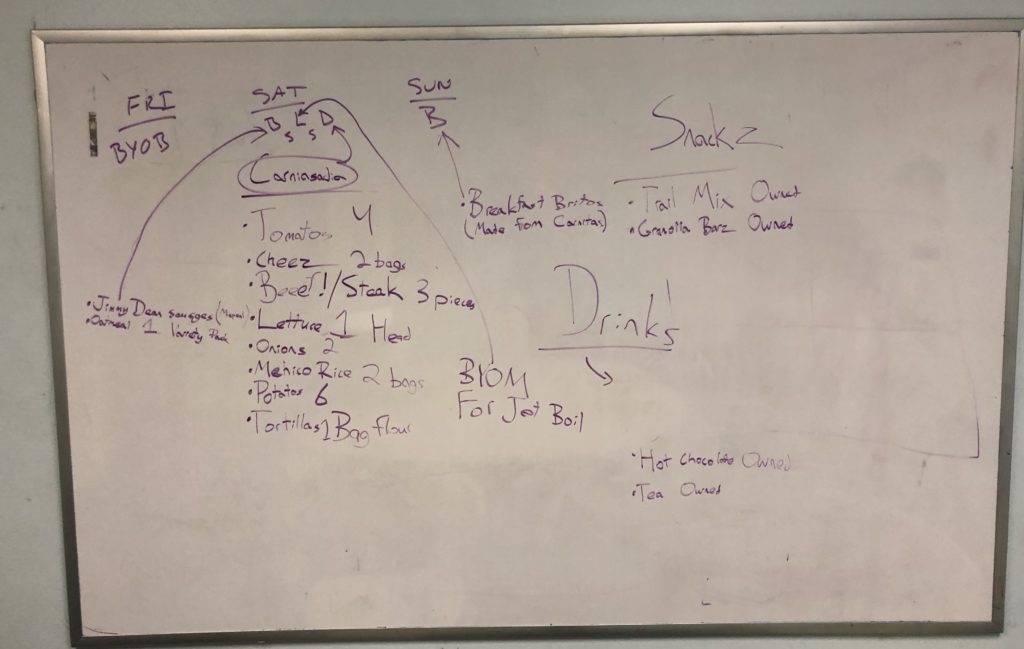 FRI
BYOB
SAT
B S L S D
Carniasadia
• Tomatos 4
• Cheez 2 bags
• Beeef!/Steak 3 pieces
• Lettuce 1 Head
• Onions 2
• Mehico Rice 2 bags
• Potatos 6
• Tortillas 1 Bag flour
• Jimmy Dean
• Oatmeal 1 Variety Pack
SUN
B
• Breakfast Britos
(Made from Carnitas)
BYOM
For Jet Boil
Snackz
• Trail Mix Owned
• Granolla Barz Owned
Drinks!
• Hot Chocolate Owned
• Tea Owned